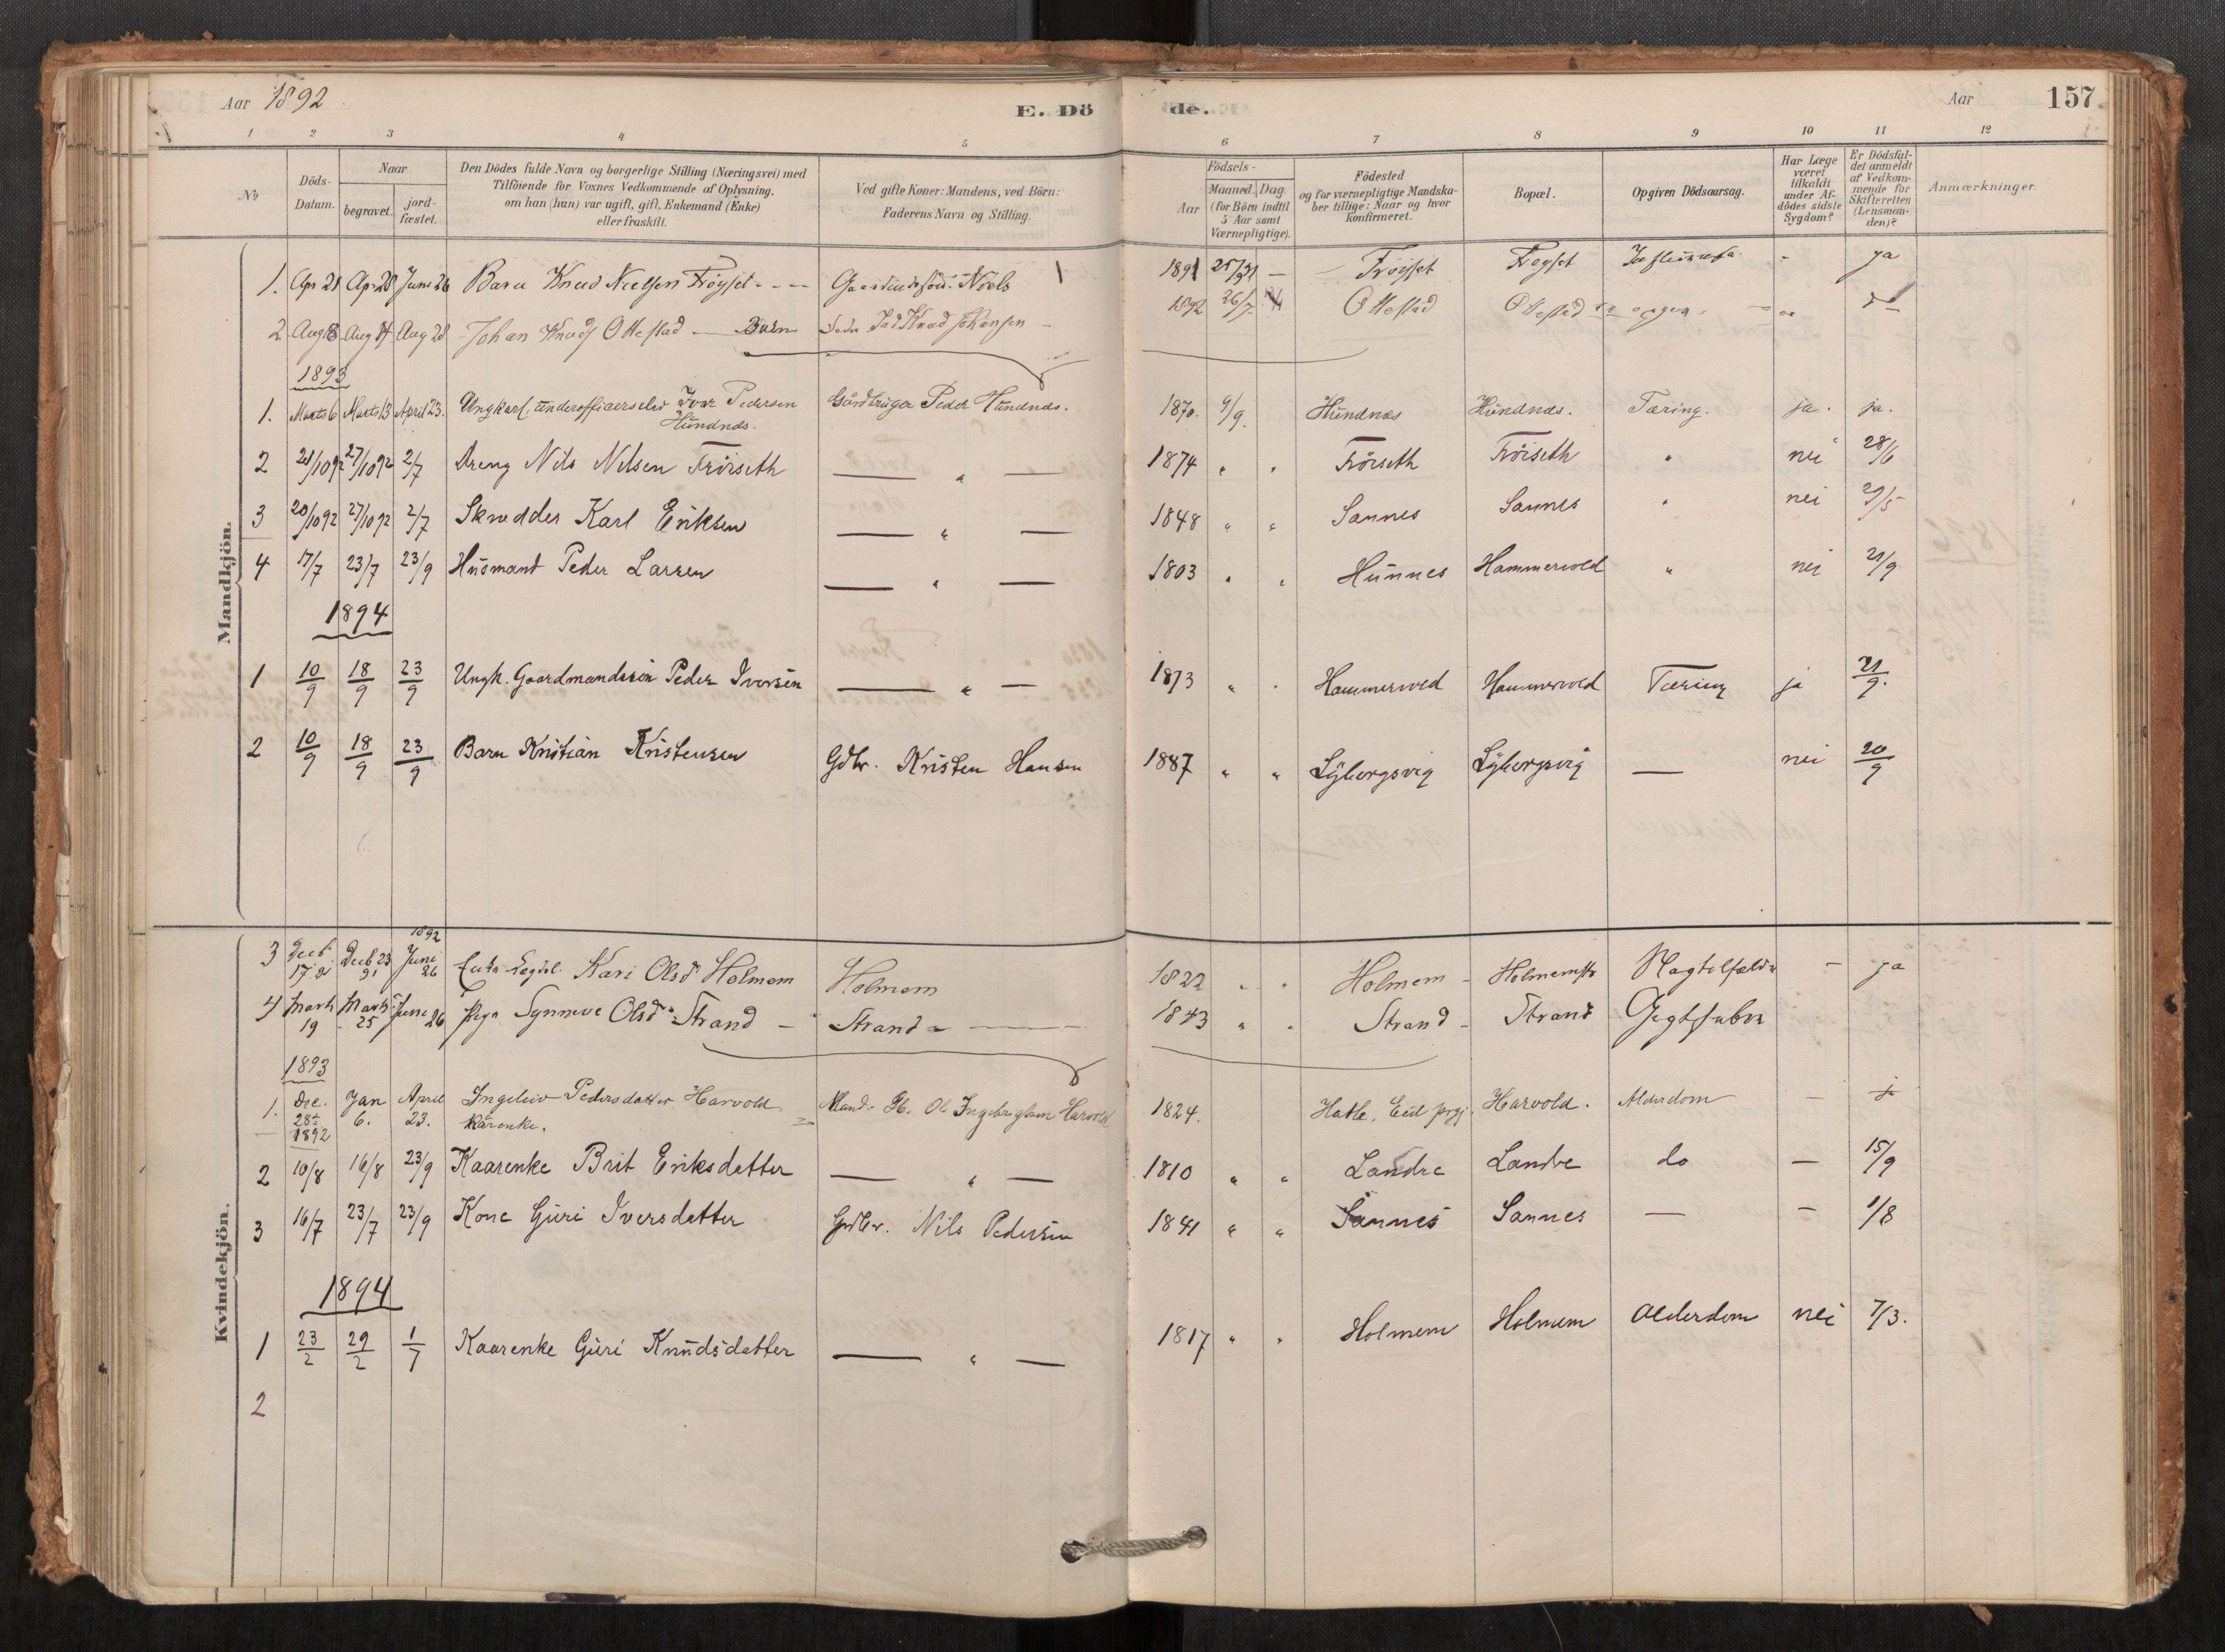 Aar 1892
E. Dö
de.
Aar
157
1 2 3 4 5 6 7 8 9 10 11 12
No
Döds-Datum.
Naar
begravet.
jord-fæstet.
Den Dödes fulde Navn og borgerlige Stilling (Næringsvei) med
Tilföiende for Voxnes Vedkommende af Oplysning,
om han (hun) var ugift, gift, Enkemand (Enke)
eller fraskilt.
Ved gifte Koner: Mandens, ved Börn:
Faderens Navn og Stilling.
Födsels-
Aar
Maaned. Dag.
(for Börn indtil
5 Aar samt
Værnepligtige).
Födested
og for værnepligtige Mandska-
ber tillige: Naar og hvor
konfirmeret.
Bopæl.
Opgiven Dödsaarsag.
Har Læge
været
tilkaldt
under Af-
dödes sidste
Sygdom?
Er Dödsfal-
det anmeldt
af Vedkom-
mende for
Skifteretten
(Lensman-
den)?
Anmærkninger.
Mandkjön.
1. Apr 21 Apr 28 Juni 26 Barn Knud Nielsen Fröyset 1891 Fröyset Froyset - ja
2 Aug 8 Aug 14 Aug 28 Johan Knuds Ottestad Barn Knud Johansen 1892 26/7 Ottestad Ottestad
1893
1. Marts 6 Marts 13 April 23. Ungkarl, underofficerselev Ivar Pedersen Gårdbruger Peder Hundnæs. 1870. 9/9. Hundnæs Hundnæs. Tæring. ja. ja.
Hundnæs.
2 21/1092 27/1092 2/7 Dreng Nils Nilsen Fröiseth — " — 1874 " " Fröiseth Fröiseth " nei 28/6
3 20/1092 27/1092 2/7 Skredder Karl Eriksen — " — 1848 " " Sannes Sannes " nei 29/5
4 17/7 23/7 23/9 Husmand Peder Larsen — " — 1803 " " Hunnes Hammervold " nei 21/9
1894
1 10/9 18/9 23/9 Ungk. Gaardmandssön Peder Iversen — " — 1873 " " Hammervold Hammervold Tæring ja 21/9.
2 10/9 18/9 23/9 Barn Kristian Kristensen Gdbr. Kristen Hansen 1887 " " Lyborgsvig Lyborgsvig — nei 20/9
Kvindekjön.
1892
3 Decb. 17 91 Decb 23 91 Juni 26 Kari Olsd Holmem Holmem 1822 " " Holmem - ja
4 Marts 19 Marts 25 Juni 26 Pige Synneve Olsd Strand - Strand 1843 " " Strand - Strand
1893
1. Dec. 28 1892 Jan 6. April 23. Ingeleiv Pedersdatter Harvold Mand: Gb. Ole Ingebrigtsen Harvold 1824. Hatle, Eid Harvold. Alderdom - ja
Kårenke.
2 10/8 16/8 23/9 Kaarenke Brit Eriksdatter — " — 1810 " " Landre Landre do — 15/9
3 16/7 23/7 23/9 Kone Guri Iversdatter Gdbr. Nils Pedersen 1841 " " Sannes Sannes — - 1/8
1894
1 23/2 29/2 1/7 Kaarenke Guri Knudsdatter — " — 1817 " " Holmem Holmem Alderdom nei 7/3.
2